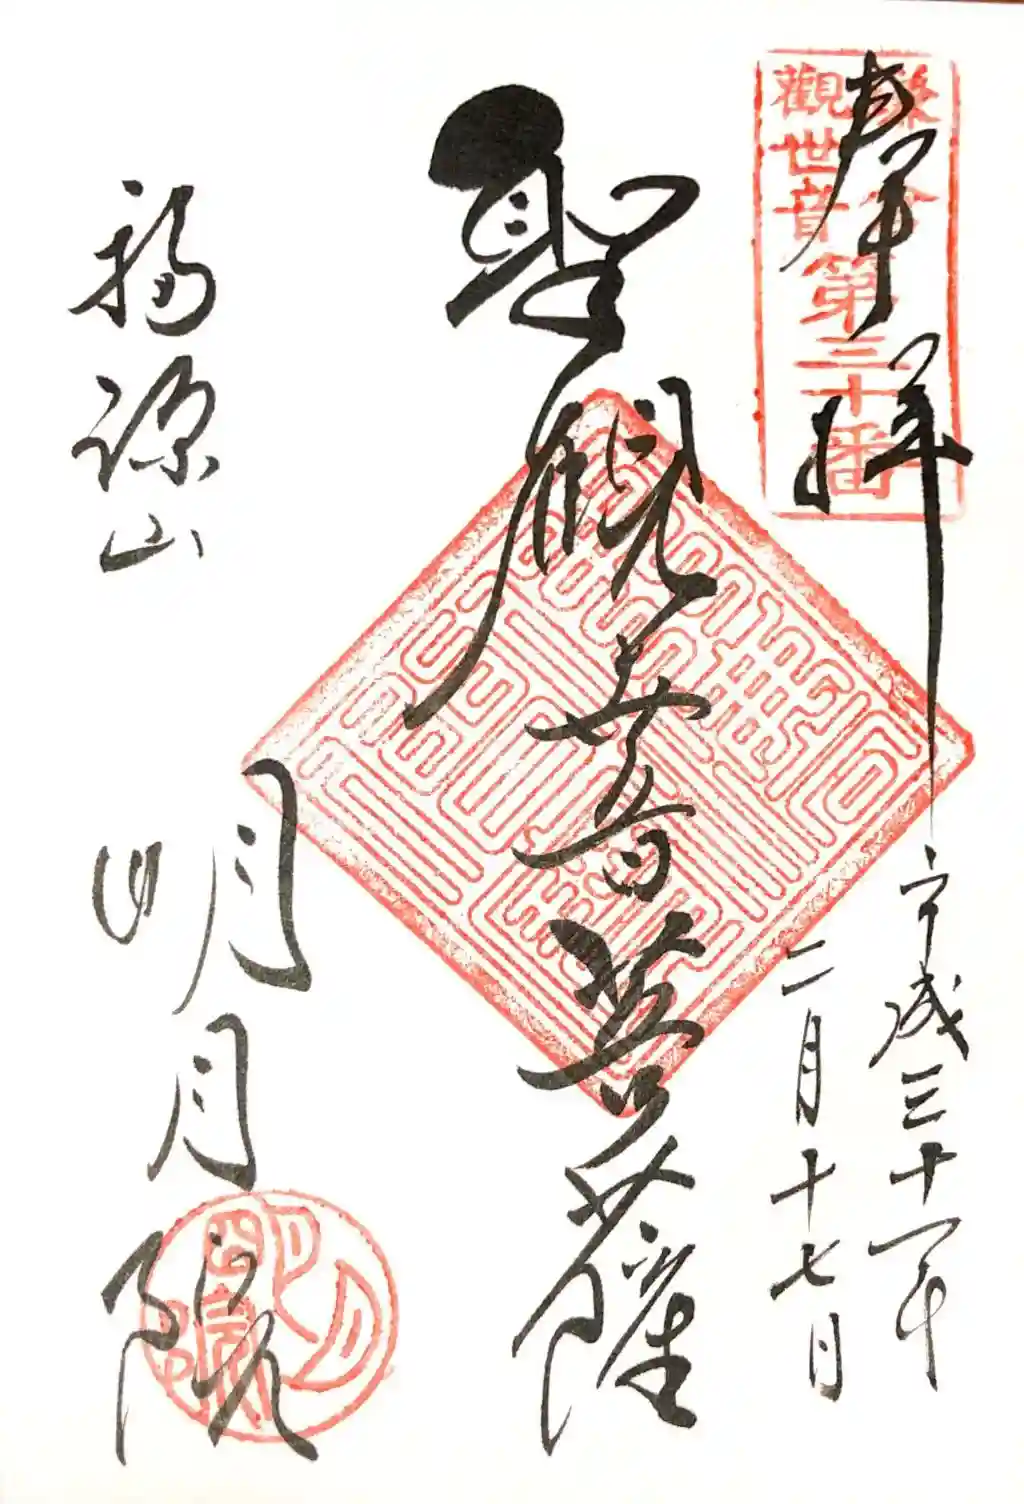 奉拝
鎌倉
觀世音
第三十番
平成三十一年
二月十七日
聖観世音菩薩
福源山
明月院